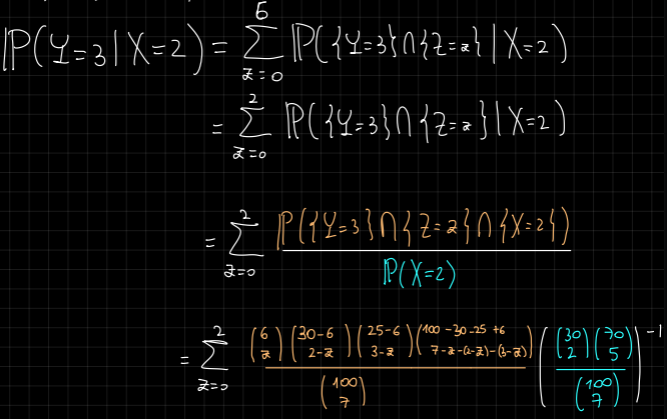 ℙ(Y=3|X=2) = ∑_{z=0}^{6} ℙ({Y=3}∩{Z=z}|X=2)
= ∑_{z=0}^{2} ℙ({Y=3}∩{Z=z}|X=2)
= ∑_{z=0}^{2} \frac{ℙ({Y=3}∩{Z=z}∩{X=2})}{ℙ(X=2)}
= ∑_{z=0}^{2} \frac{\binom{6}{z}\binom{30-6}{2-z}\binom{25-6}{3-z}\binom{100-30-25+6}{7-z-(2-z)-(3-z)}}{\binom{100}{7}} \left(\frac{\binom{30}{2}\binom{70}{5}}{\binom{100}{7}}\right)^{-1}